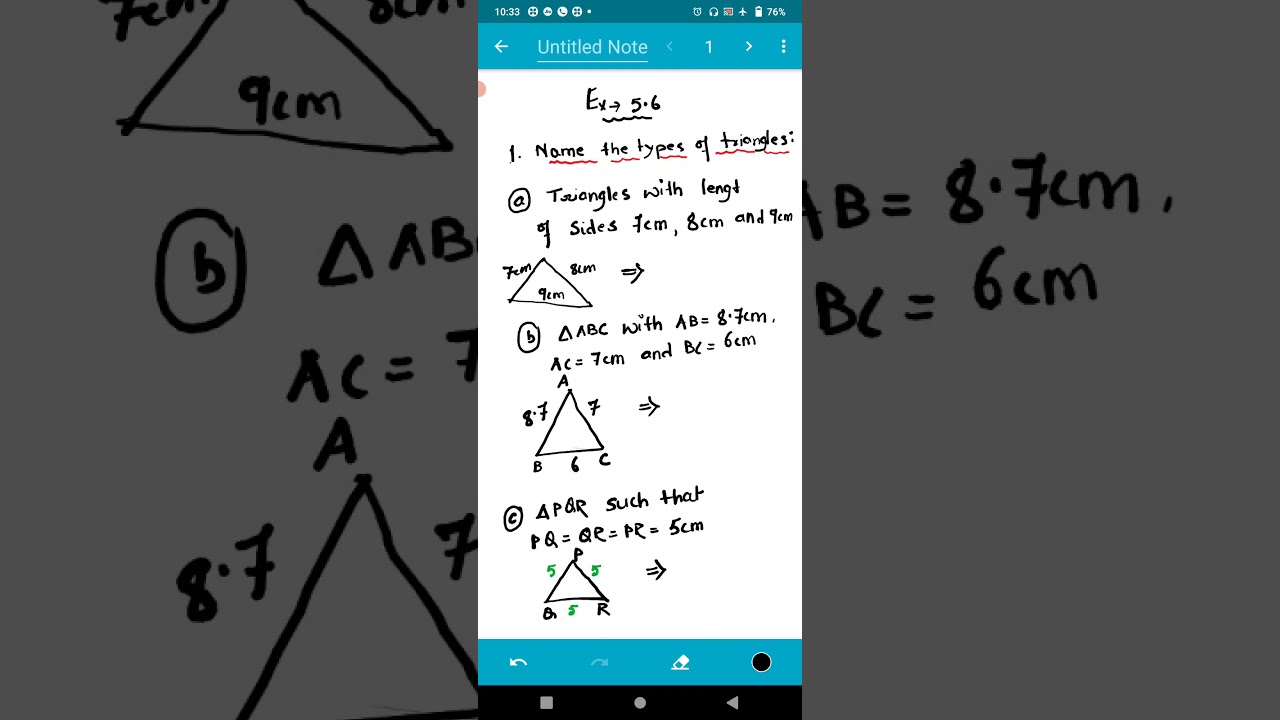 10:33
76%
Untitled Note
1
Ex→ 5.6
1. Name the types of triangles:
ⓐ Triangles with lengt
of sides 7cm, 8cm and 9cm
7cm 8cm ⇒
9cm
ⓑ △ABC with AB= 8.7cm,
AC= 7cm and BC= 6cm
A
8.7 7 ⇒
B 6 C
ⓒ △PQR such that
PQ = QR = PR = 5cm
P
5 5 ⇒
Q 5 R
7cm 8cm
9cm
ⓑ △AB
AC = 7
A
8.7 7
AB= 8.7cm,
BC = 6cm